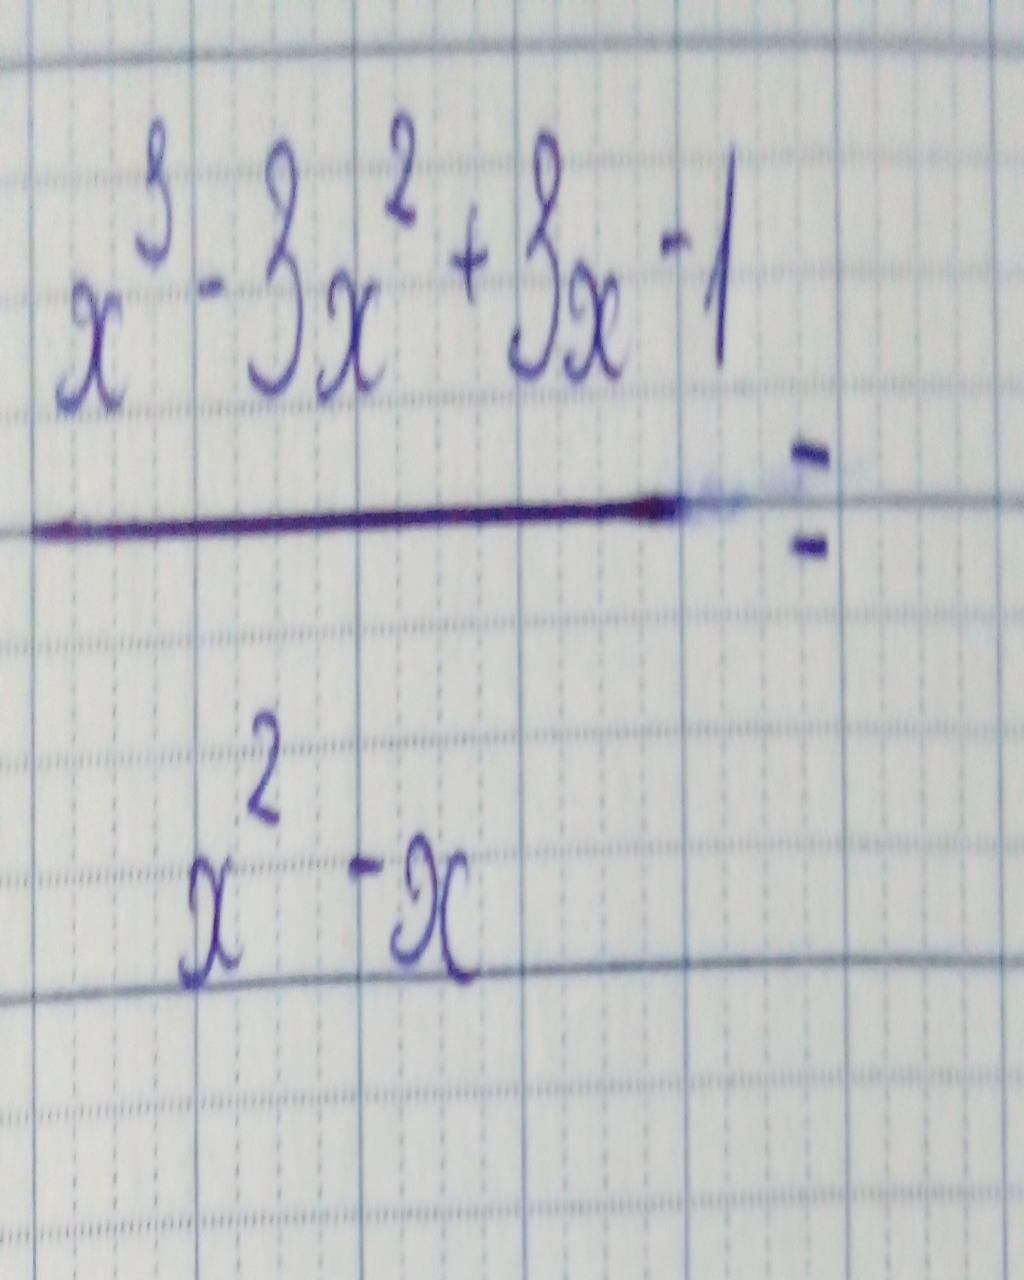 x³ - 3x² + 3x - 1
=
x² - x